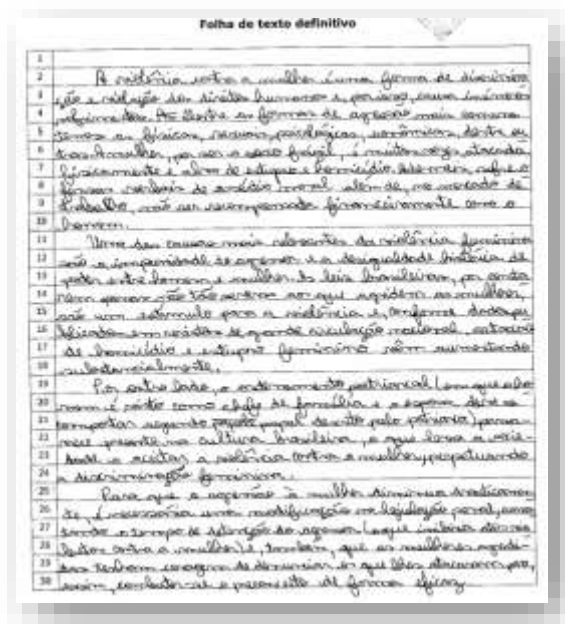 Folha de texto definitivo
1
2 A violência contra a mulher é uma forma de discrimina
3 ção e violação dos direitos humanos e, por isso, causa inúmeros
4 sofrimentos. Dentre as formas de agressão mais comuns
5 temos as físicas, sexuais, psicológicas, econômicas, dentre ou
6 tras. A mulher, por ser o sexo frágil, é muitas vezes atacada
7 fisicamente e alvo de estupro e homicídio. Ademais, sofre
8 formas verbais de assédio moral além de, no mercado de
9 trabalho, não ser recompensada financeiramente como o
10 homem.
11 Uma das causas mais relevantes da violência feminina
12 são a impunidade do agressor e a desigualdade histórica de
13 poder entre homem e mulher. As leis brasileiras, por
14 não tão severas ao que agridem as mulheres,
15 são um estímulo para a violência e, conforme dados pu
16 blicados em de grande circulação nacional,
17 de homicídio e estupro feminino vêm aumentando
18 substancialmente.
19 Por outro lado, o patriarcal (em que o ho
20 mem é visto como chefe de família e a esposa deve se
21 comportar segundo papel descrito pelo patriarca) perma
22 nece presente na cultura brasileira, o que leva a socie-
23 dade a aceitar a violência contra a mulher, perpetuando
24 a discriminação feminina.
25 Para que a agressão à mulher diminua drasticamen
26 te, é necessária uma modificação na legislação penal, aumen
27 tando o tempo de detenção do agressor (o que inibiria
28 contra a mulher) e, também, que as mulheres agredi-
29 das tenham coragem de denunciar os que lhes atacaram para,
30 assim, combater-se o preconceito de forma eficaz.